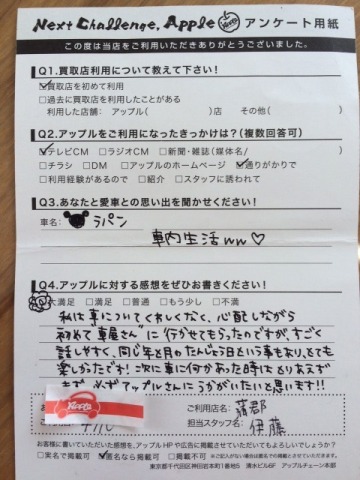 Next Challenge, Apple アンケート用紙
この度は当店をご利用いただきありがとうございました。
Q1.買取店利用について教えて下さい!
買取店を初めて利用
□過去に買取店を利用したことがある
利用した店舗: アップル( )店 その他( )
Q2.アップルをご利用になったきっかけは?(複数回答可)
テレビCM □ラジオCM □新聞・雑誌(媒体名/ )
□チラシ □DM □アップルのホームページ 通りがかりで
□利用経験があるので □紹介 □スタッフに誘われて
Q3.あなたと愛車との思い出を聞かせください!
車名: ラパン
車内生活ww♡
Q4.アップルに対する感想をぜひお書きください!
大満足 □満足 □普通 □もう少し □不満
私は車についてくわしくなく、心配しながら
初めて"車屋さん"に行かせてもらったのですが、すごく
話しやすく、同じ年と月のたんじょう日という事もあり、とても
楽しかったです!次に車に何かあった時はとりあえず
まず、必ずアップルさんにうかがいたいと思います!!
Apple
ご利用店名: 蒲郡
担当スタッフ名: 伊藤
お客様に書いていただいた感想を、アップルHPや広告に掲載させていただいてもよろしいでしょうか?
□実名で掲載可 匿名なら掲載可 □掲載不可 ※ご記入がない場合は匿名での掲載とさせていただきます。
東京都千代田区神田岩本町1番地5 清水ビル6F アップルチェーン本部